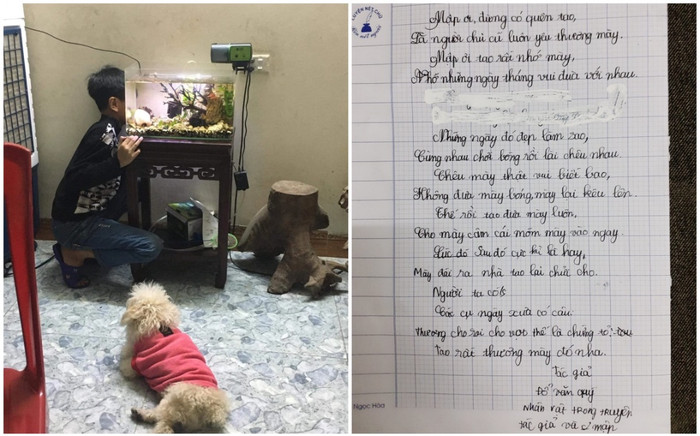 Mập ơi, đừng có quên tao,
Là người chủ cũ luôn yêu thương mày.
Mập ơi tao rất nhớ mày,
Nhớ những ngày tháng vui đùa với nhau.
Những ngày đó đẹp làm sao,
Cùng nhau chơi bóng rồi lại chêu nhau.
Chêu mày thấy vui biết bao,
Không đưa mày bóng, mày lại kêu lên.
Thế rồi tao đưa mày luôn,
Cho mày cắm cái mõm mày vào ngay.
Lúc đó
Mày đái ra nhà tao lại chửi cho.
Người ta
Các cụ ngày xưa có câu.
Thương cho roi cho vọt thế là chứng tỏ
tao rất thương mày đó nha.
Tác giả
Đỗ văn quý
Nhân vật trong truyện
tác giả và mập
Ngọc Hòa